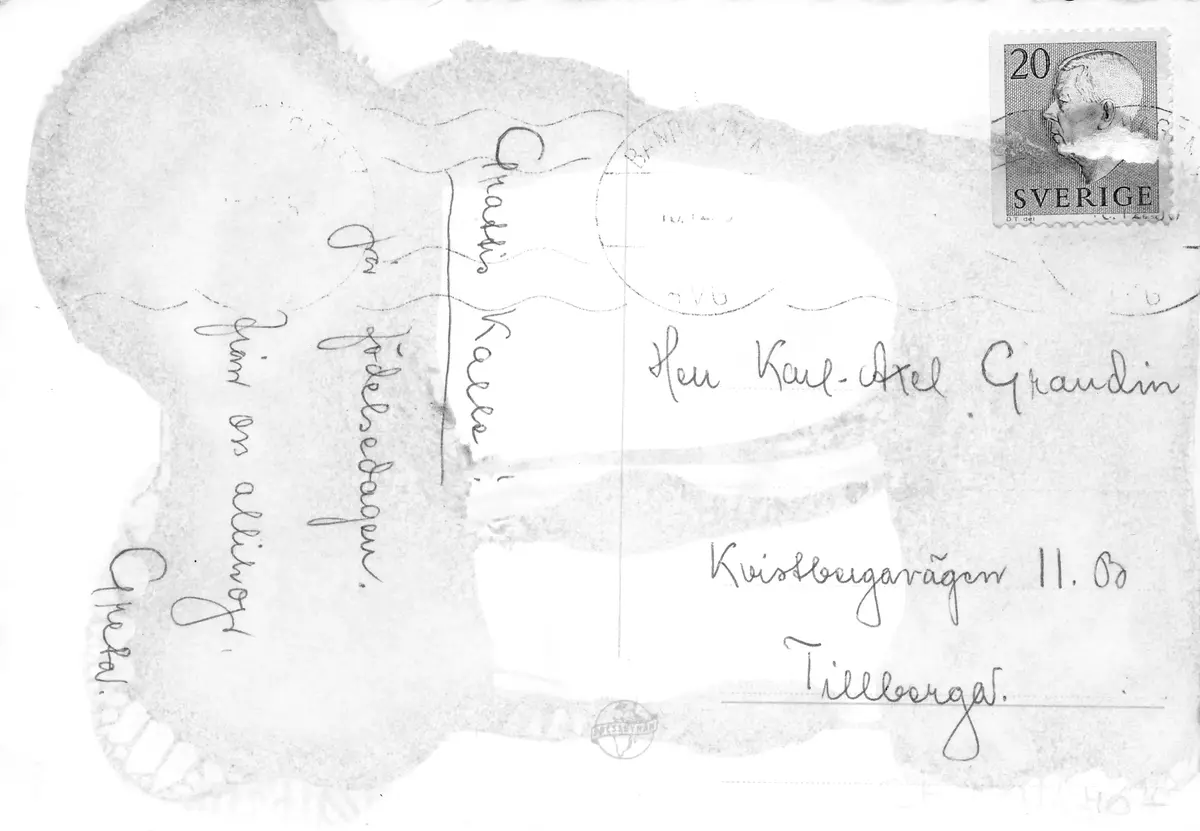 Grattis Kalle!
på
födelsedagen.
från oss allihop,
Greta.
20
SVERIGE
Herr Karl-Axel Grandin
Kvistbergavägen 11. B
Tillberga.
PRESSBYRÅN